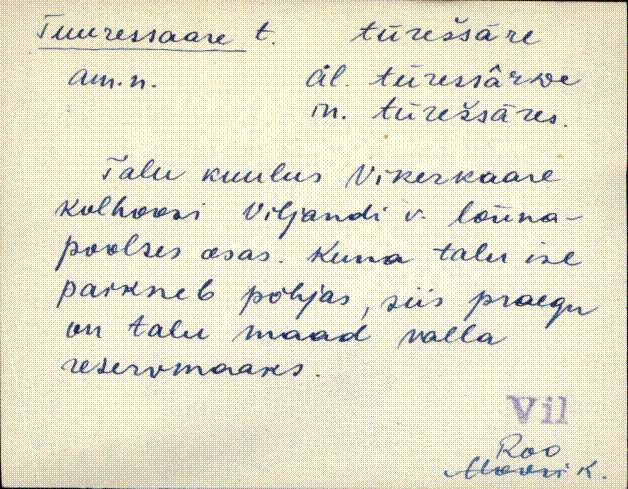 Tuuressaare t. tūrešsāre
am.n. ál. tūressârwe
in. tūrešsāres.
Talu kuulus Vikerkaare
kolhoosi Viljandi v. lõuna-
poolses osas. Kuna talu ise
paikneb põhjas, siis praegu
on talu maad valla
reservmaaks.
Vil
Roo
K.